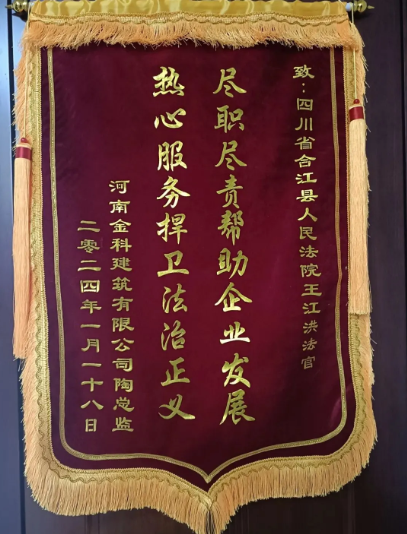 致：四川省合江县人民法院王江洪法官
尽职尽责帮助企业发展
热心服务捍卫法治正义
河南金科建筑有限公司陶总监
二零二四年一月一十八日